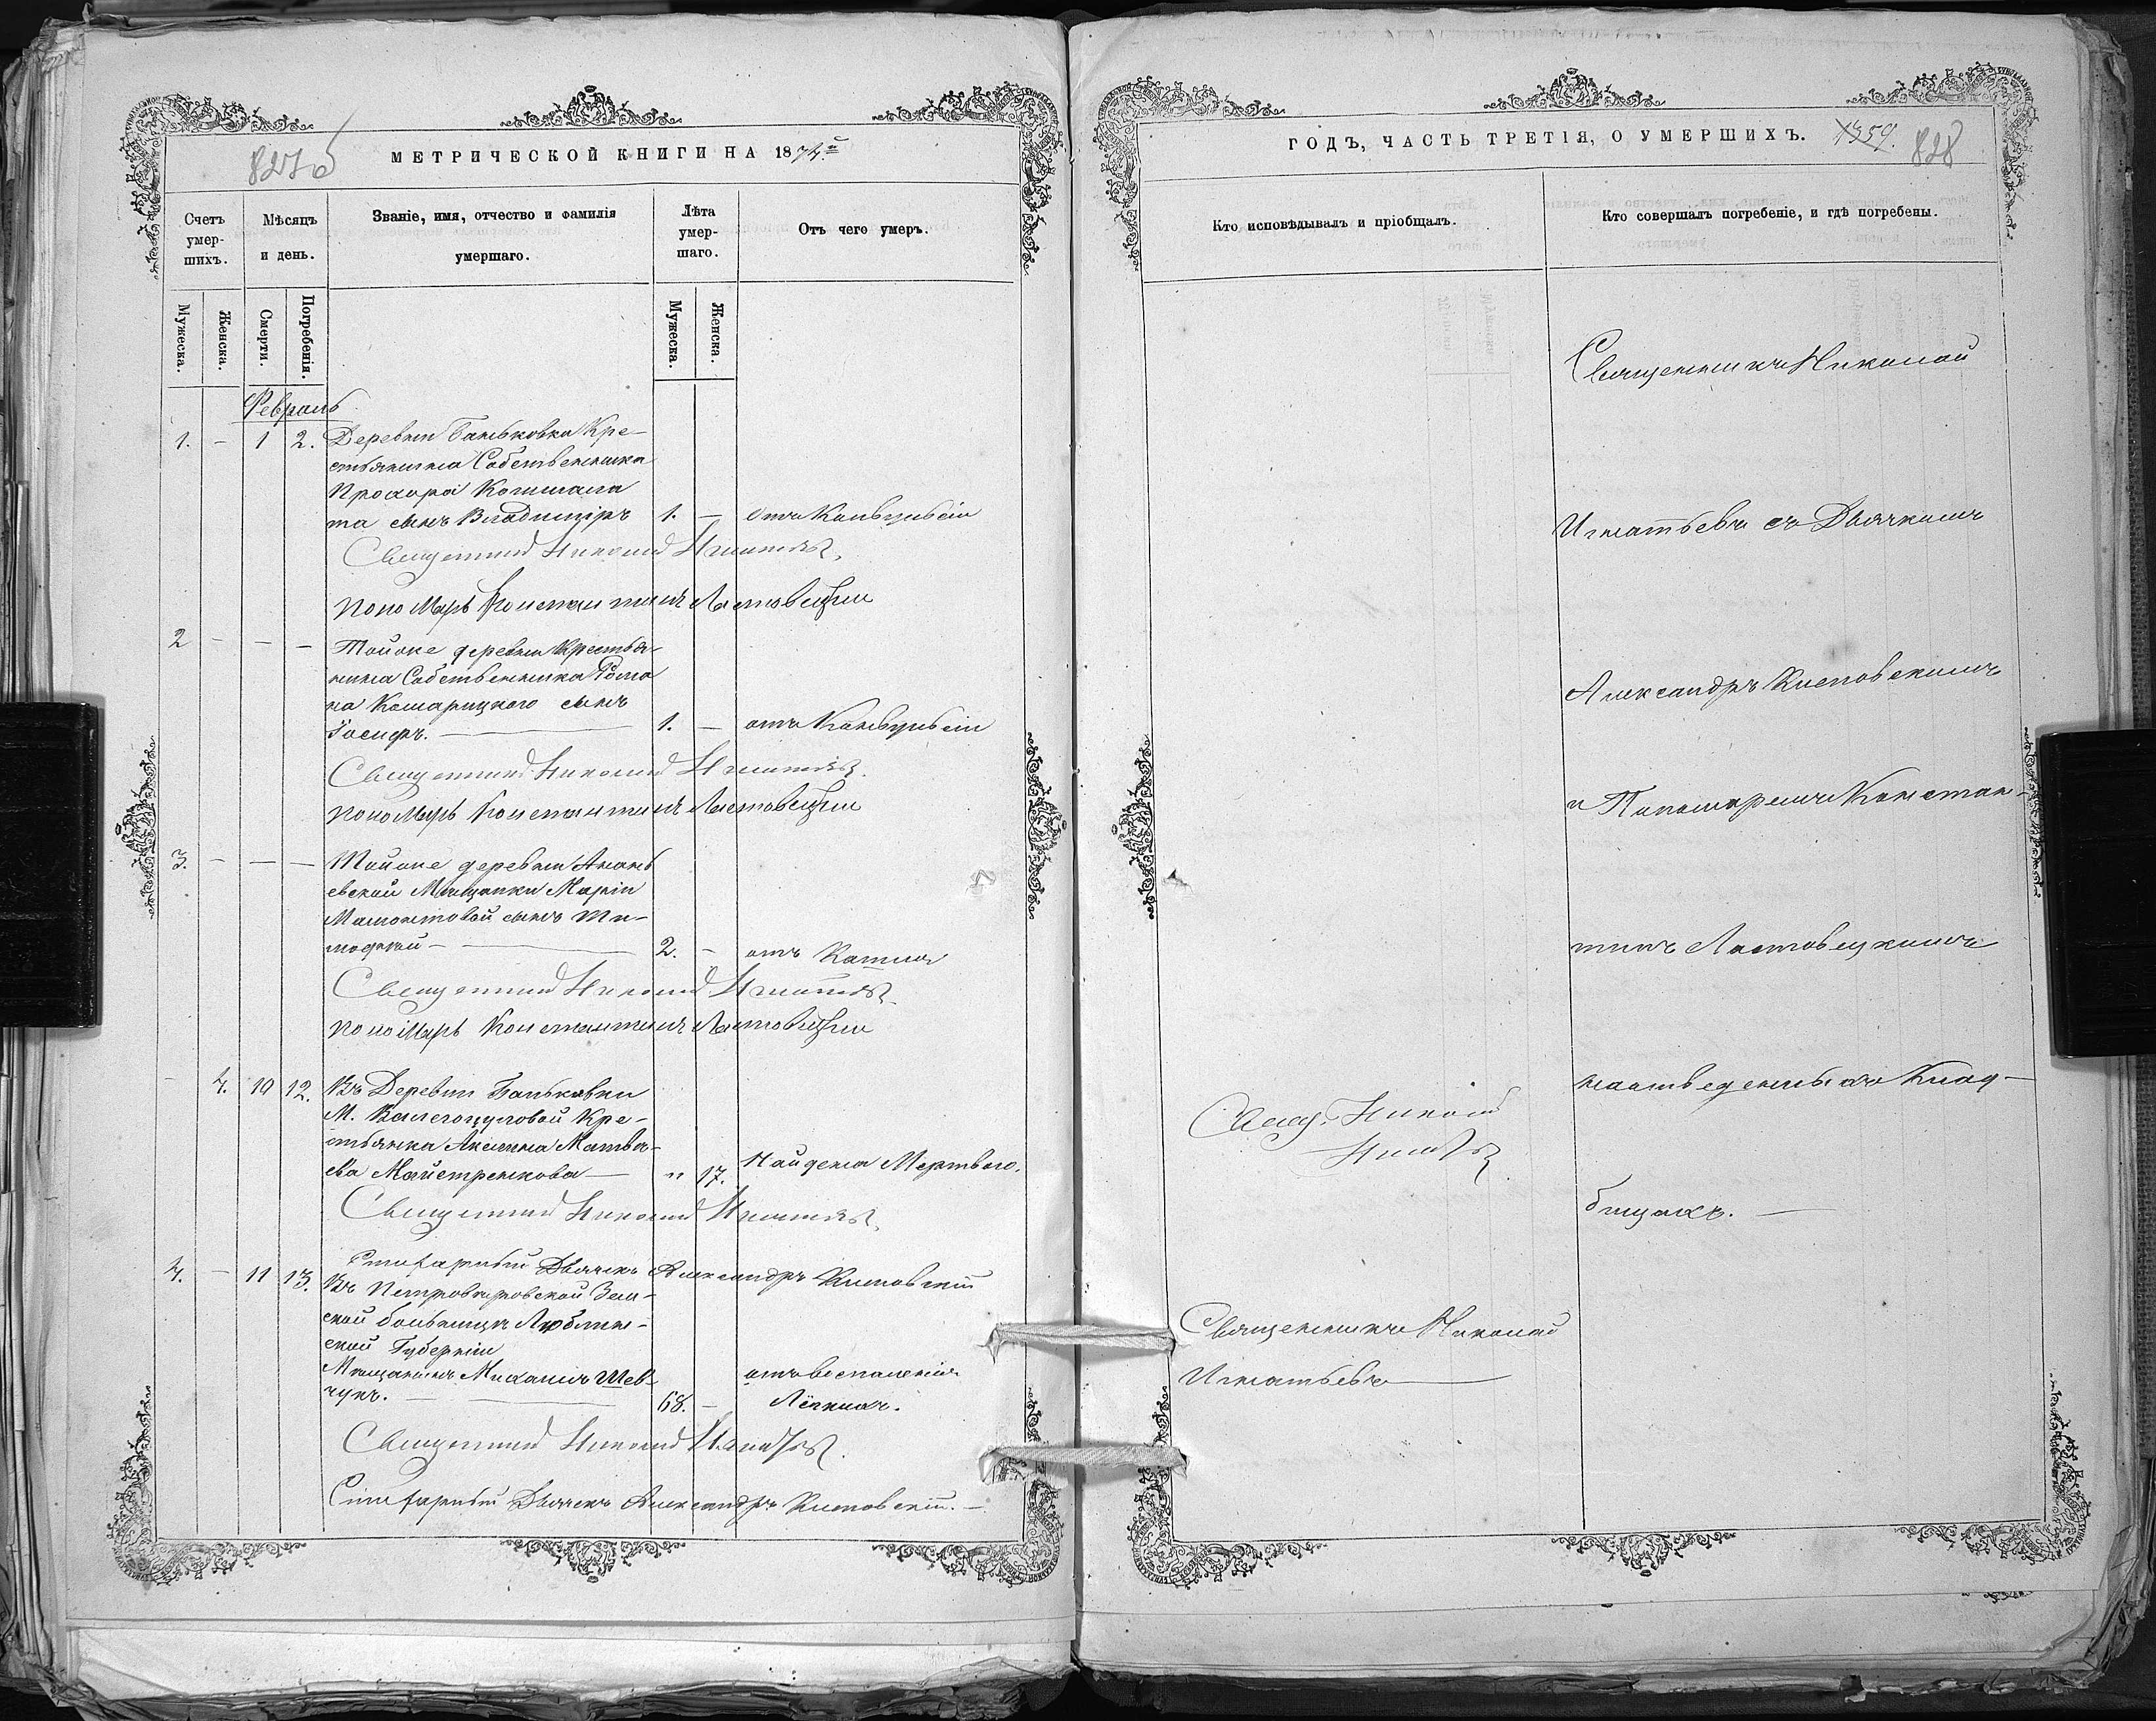 827б
МЕТРИЧЕСКОЙ КНИГИ НА 1874й
Счетъ умер-шихъ.
Мѣсяцъ и день.
Званіе, имя, отчество и фамилія умершаго.
Лѣта умер-шаго.
Отъ чего умеръ.
Мужеска.
Женска.
Смерти.
Погребенія.
Мужеска.
Женска.
Февраль
1. – 1 2. Деревни Баньковки Кре-
стьянина Собственника
Прохора
та сынъ Владиміръ 1. – отъ Конвульсіи
Священникъ Николай Игнатьевъ.
Пономарь Константинъ Лястовецкій
2 – – – Тойже деревни Крестья-
нина Собственника Рома
на Комарицкого сынъ
Іосифъ. 1. – отъ Конвульсіи
Священникъ Николай Игнатьевъ.
Пономарь Константинъ Лястовецкій
3. – – – Тойже деревни Анань
евской Мѣщанки Маріи
Мамонтовой сынъ Ти-
мофей – 2. – отъ Кашля
Священникъ Николай Игнатьевъ.
Пономарь Константинъ Лястовецкій
– 4. 10 12. Въ Деревни Баньковки
М. Валегоцуловой Кре-
стьянка Акилина Матвѣ-
ева Майстренкова – " 17. Найдена Мертвою.
Священникъ Николай Игнатьевъ.
Стихарный Дьячекъ Александръ
4. – 11 13. Въ Петровѣровской Зем-
ской больницѣ Люблин-
ской Губерніи
Мѣщанинъ Михаилъ Шев-
чукъ. 68. – отъ воспаленія
Лёгкихъ.
Священникъ Николай Игнатьевъ.
Стихарный Дьячекъ Александръ
ГОДЪ, ЧАСТЬ ТРЕТІЯ, О УМЕРШИХЪ.
1359.
828
Кто исповѣдывалъ и пріобщалъ.
Кто совершалъ погребеніе, и гдѣ погребены.
Священникъ Николай
Игнатьевъ съ Дьячкомъ
Александромъ
и Пономаремъ Констан-
тиномъ Лястовецкимъ
на отведенныхъ Клад-
бищахъ. –
Свящ. Николай
Игнатьевъ
Священникъ Николай
Игнатьевъ